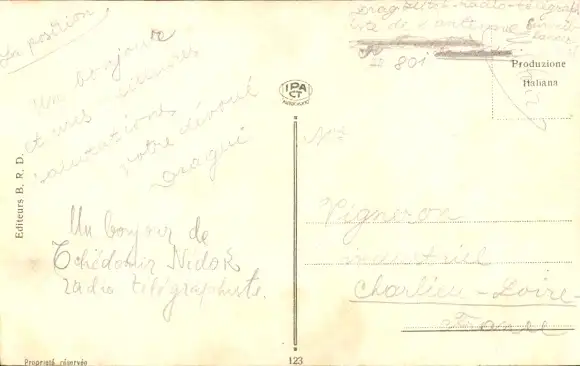 La position
Un bonjour
et mes sincères
salutations
votre dévoué
Dragui
Un bonjour de
Tchédomir Nidok
radio télégraphiste.
Editeurs B. R. D.
Propriété réservée
123
IPA
CT
radio-télégraph
iste de
801
Produzione
Italiana
Vigneron
industriel
Charlieu-Loire-
France